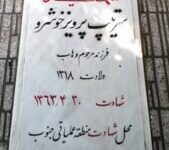 سرتیپ پرویز خوشرو
فرزند مرحوم وهاب
ولادت ۱۳۱۸
شهادت ۱۳۶۳.۴.۳۰
محل شهادت منطقه عملیاتی جنوب